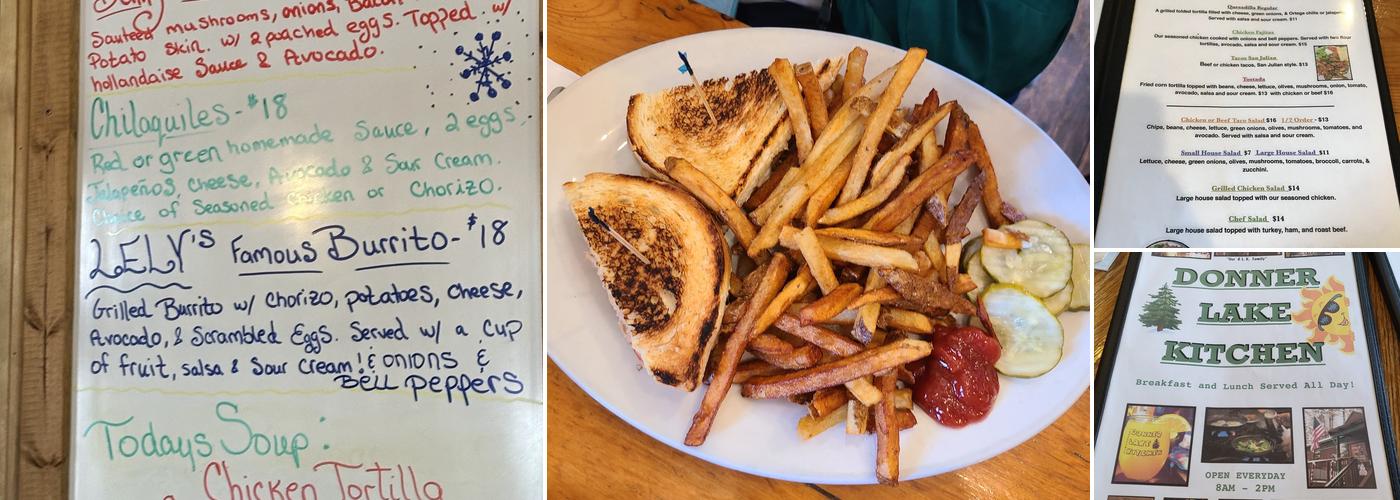 Sauteed mushrooms, onions, Bacon
Potato Skin. w/ 2 poached eggs. Topped w/
hollandaise Sauce & Avocado.
Chilaquiles - $18
Red or green homemade Sauce, 2 eggs.
Jalapeños, cheese, Avocado & Sour Cream.
Choice of Seasoned chicken or Chorizo.
LELY'S Famous Burrito - $18
Grilled Burrito w/ Chorizo, potatoes, cheese,
Avocado, & Scrambled Eggs. Served w/ a cup
of fruit, salsa & Sour Cream! & onions &
Bell peppers
Todays Soup:
Chicken Tortilla
Quesadilla Regular
A grilled folded tortilla filled with cheese, green onions, & Ortega chilis or jalapeño
Served with salsa and sour cream. $11
Chicken Fajitas
Our seasoned chicken cooked with onions and bell peppers. Served with two flour
tortillas, avocado, salsa and sour cream. $15
Tacos San Julian
Beef or chicken tacos, San Julian style. $13
Tostada
Fried corn tortilla topped with beans, cheese, lettuce, olives, mushrooms, onion, tomato,
avocado, salsa and sour cream. $13 with chicken or beef $16
Chicken or Beef Taco Salad $16 1/2 Order - $13
Chips, beans, cheese, lettuce, green onions, olives, mushrooms, tomatoes, and
avocado. Served with salsa and sour cream.
Small House Salad $7 Large House Salad $11
Lettuce, cheese, green onions, olives, mushrooms, tomatoes, broccoli, carrots, &
zucchini.
Grilled Chicken Salad $14
Large house salad topped with our seasoned chicken.
Chef Salad $14
Large house salad topped with turkey, ham, and roast beef.
"Our d.L.K. Family"
DONNER
LAKE
KITCHEN
Breakfast and Lunch Served All Day!
DONNER
LAKE
KITCHEN
OPEN EVERYDAY
8AM - 2PM